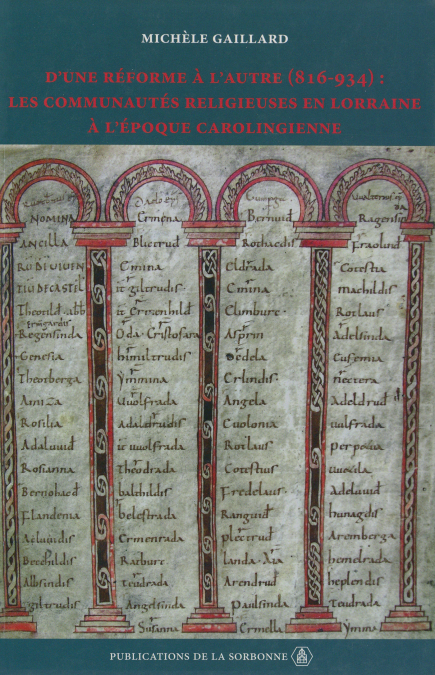 MICHÈLE GAILLARD
D'UNE RÉFORME À L'AUTRE (816-934) :
LES COMMUNAUTÉS RELIGIEUSES EN LORRAINE
À L'ÉPOQUE CAROLINGIENNE
NOMINA
ANCILLA
Regensinda
Genesia
Theotberga
Amiza
Rosilia
Adaluuid
Rosanna
Flandenia
Albsindis
giltrudis
Ermena
Blictrud
Emina
it giltrudis
Oda
himiltrudis
Ymmina
Uuolfrada
it uuolfrada
Theodrada
balthildis
belestrada
Ermenrada
Rarburc
teudrada
Angelsinda
Susanna
Bernuid
Rothaedis
Eldrada
Emina
Climburc
Asprin
Dedela
Erlindis
Angela
Euolonia
Rotlaus
Cotestus
Fredelaus
Ranguid
plectrud
landa
Arendrud
Paulsinda
Ermella
Ragensis
Fraoluid
Cotestia
machildis
Rotlaus
Adelsinda
Eufemia
Adeldrud
uulfrada
perpetua
Adeluuid
hunagdis
Aremberga
hemelrada
heplendis
Teudrada
Ymma
PUBLICATIONS DE LA SORBONNE